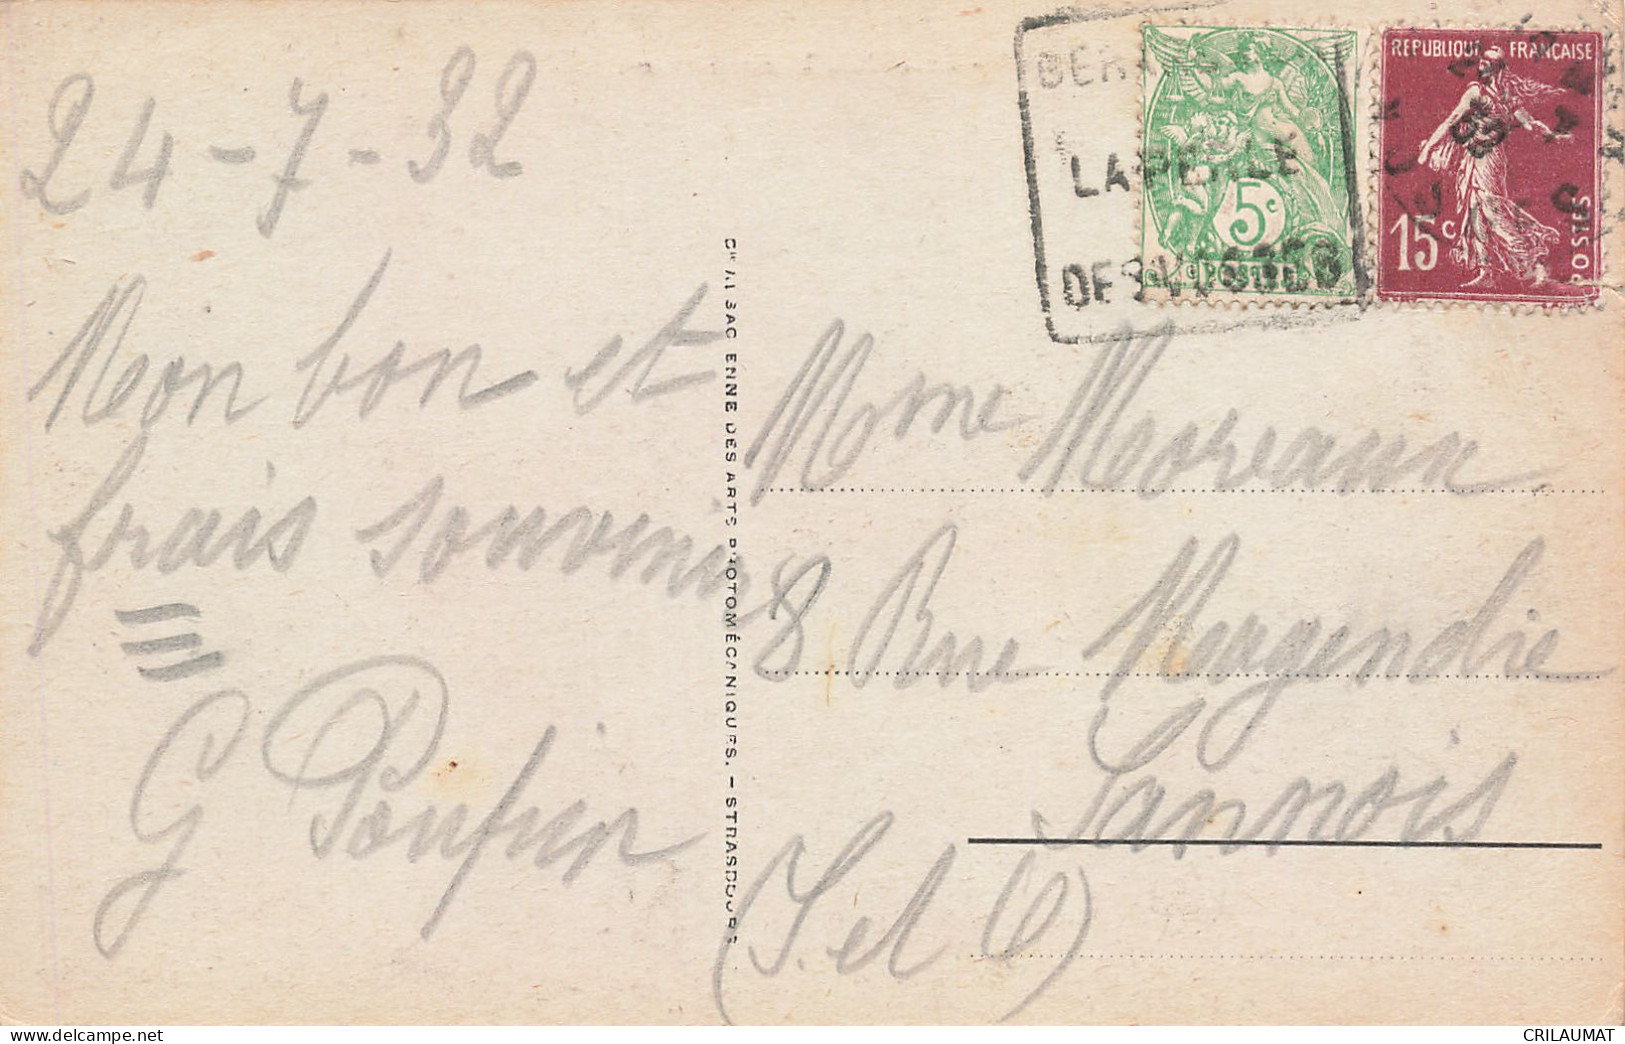 24-7-32
Mon bon et
frais souvenir
G Poupin
GÉRARDMER
LA PERLE
DES VOSGES
5c
POSTES
REPUBLIQUE FRANÇAISE
15c
POSTES
Cie ALSACIENNE DES ARTS PHOTOMÉCANIQUES. - STRASBOURG
Mme Moreaux
8 Rue Magendie
Sannois
(S et O)
CRILAUMAT